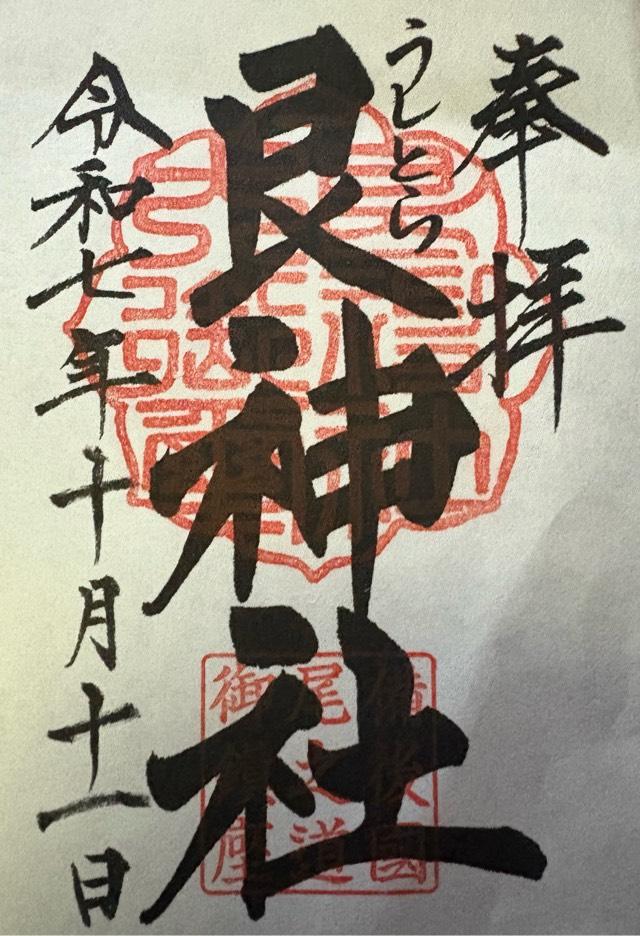 奉拝
うしとら
艮神社
備後國
尾之道
御鎮座
令和七年十月十一日